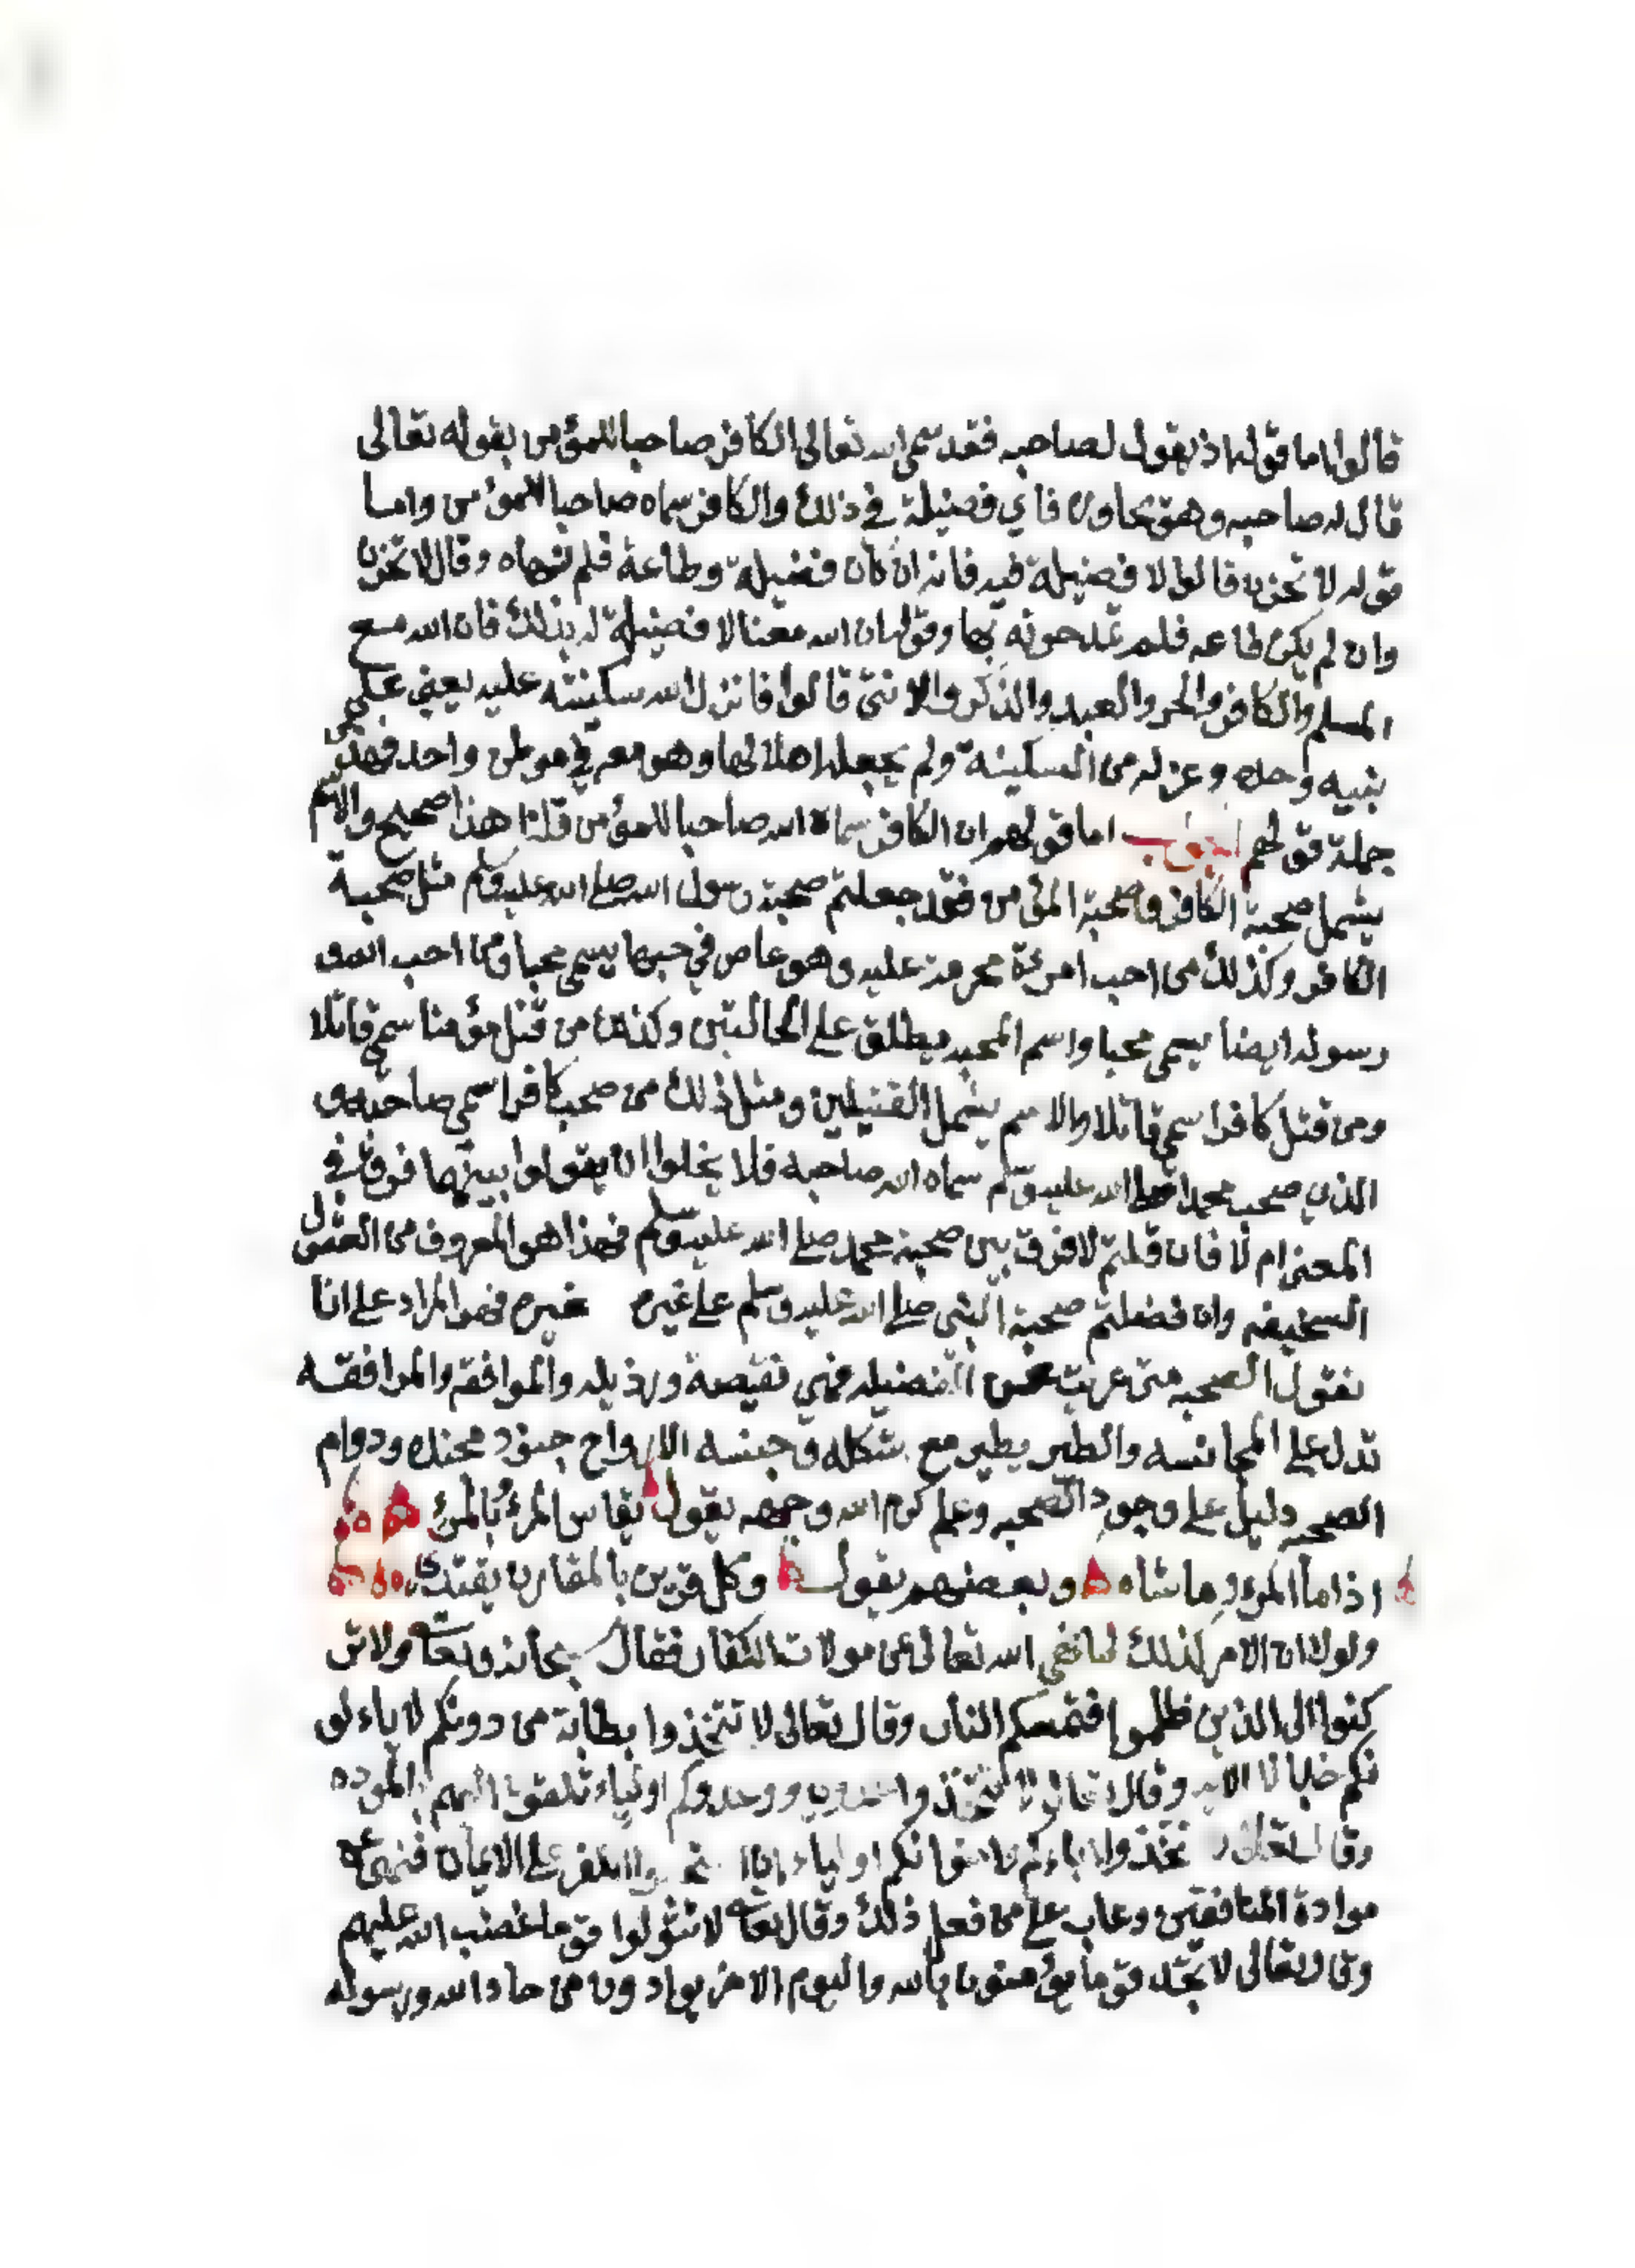 قالوا اما قوله اذ يقول لصاحبه فقد سمى الله تعالى الكافر صاحبا للمؤمن بقوله تعالى
قال له صاحبه وهو يحاوره فاي فضيلة في ذلك والكافر سماه صاحبا للمومن واما
قوله لا تحزن قالوا لا فضيلة فيه فانه ان كان فضيلة وطاعة فلم نهاه وقال لا تحزن
وان لم يكن طاعه فلم تمدحونه بها وقوله ان الله معنا لا فضيلة له بذلك فان الله مع
المسلم والكافر والحر والعبد والذكر والانثى قالوا فانزل الله سكينته عليه يعني على
نبيه وحده وعزله من السكينة ولم يجعله اهلا لها وهو معه في موطن واحد فهذه
جملة قولهم الجواب اما قولهم ان الكافر سماه الله صاحبا للمؤمن قلنا هذا صحيح والاسم
يشمل صحبة الكافر وصحبة المؤمن فقد جعلتم صحبة رسول الله صلى الله عليه وسلم مثل صحبة
الكافر وكذلك من احب امرءة محرمة عليه وهو عاص في حبها يسمى محبا ومن احب الله و
رسوله ايضا يسمى محبا واسم المحبه يطلق على الحالتين وكذلك من قتل مؤمنا سمي قاتلا
ومن قتل كافرا سمي قاتلا والاسم يشمل القتيلين ومثل ذلك من صحب كافرا سمي صاحبه و
الذي صحب محمدا صلى الله عليه وسلم سماه الله صاحبه فلا يخلوا ان يقولوا بينهما فرق في
المعنى ام لا فان قلتم لا فرق بين صحبة محمد صلى الله عليه وسلم فهذا هو المعروف من العقول
السخيفه وان فضلتم صحبة النبي صلى الله عليه وسلم على غيره غيره فهو المراد على انا
نقول الصحبه متى عريت عن الفضيله فهي نقيصة ورذيله والموافقه والمرافقه
تدل على المجانسه والطير يطير مع شكله وجنسه الارواح جنود مجنده ودوام
الصحبه دليل على وجود الصحبه وعلي كرم الله وجهه يقول يقاس المرءُ بالمرئ
اذا ما المرؤ ما شاه وبعضهم يقول وكل قرين بالمقارن يقتدي
ولولا ان الامر كذلك لما نهى الله تعالى عن مولات الكفار فقال سبحانه وتعالى ولا تر
كنوا الى الذين ظلموا فتمسكم النار وقال تعالى لا تتخذوا بطانة من دونكم لا ياءلو
نكم خبالا الايه وقال تعالى لا تتخذوا عدوي وعدوكم اولياء تلقون اليهم بالموده
وقال تعالى لا تتخذوا اباءكم واخوانكم اولياء ان استحبوا الكفر على الايمان فنهى عن
موادة المنافقين وعاب على من فعل ذلك وقال تعالى لا تتولوا قوما غضب الله عليهم
وقال تعالى لا تجد قوما يؤمنون بالله واليوم الاخر يوادون من حاد الله ورسوله